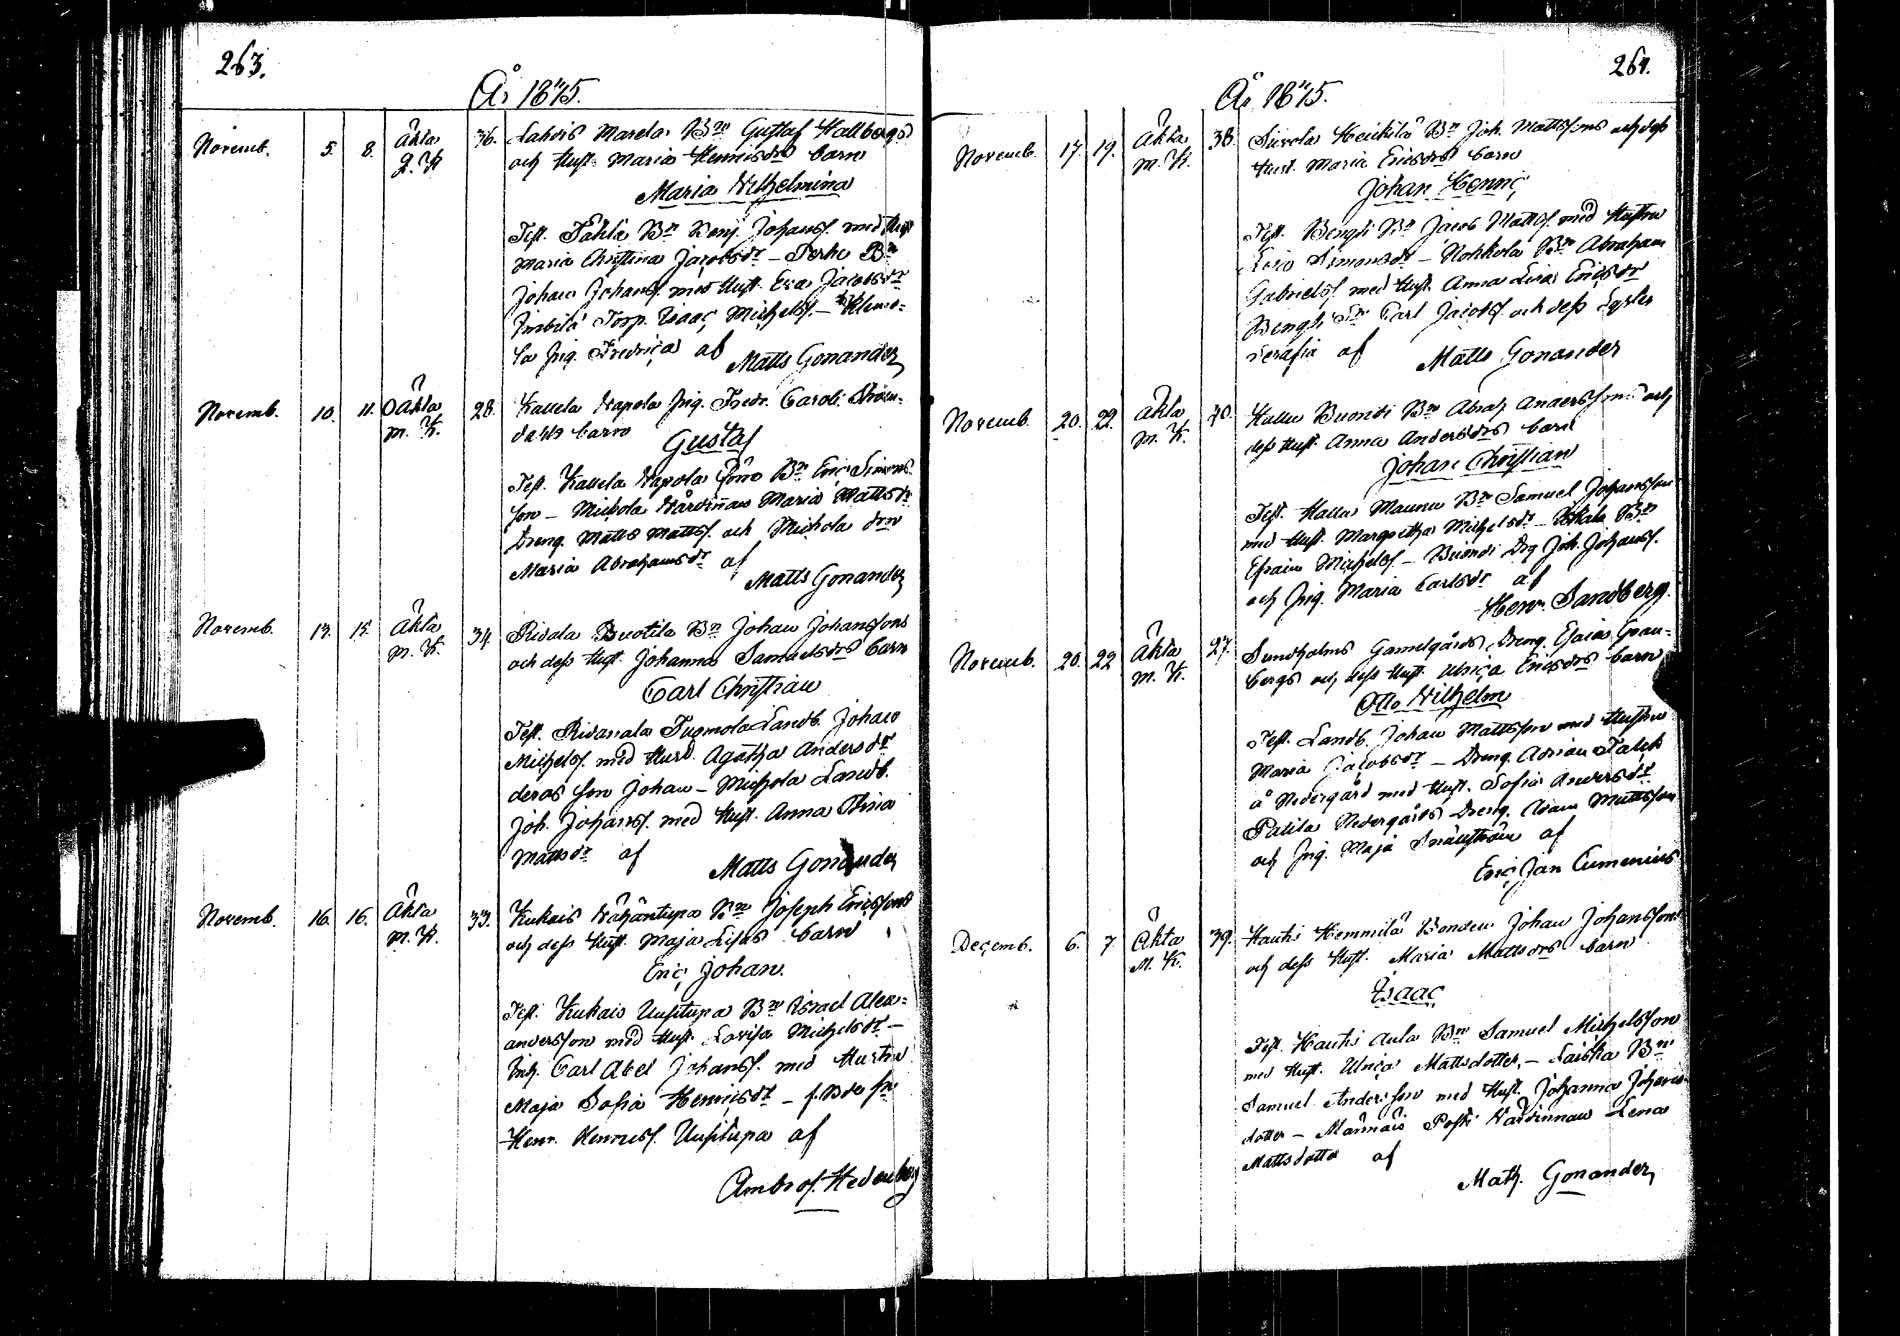 263.
År 1845.
Novemb. 5. 8. Äkta 36. Lahvis Marela Bn Gustaf Hallbergs
Q. K. och Hust. Maria Henricsdrs barn
Maria Wilhelmina
Test. Bn Benj. Johanss. med Hust
Maria Christina Jacobsdr – Perhe Bn
Johan Johanss. med Hust. Eva Jacobsdr
Torp. Isaac Michelss. –
Pig. Fredrica af Matts Gonander
Novemb. 10. 11. Oäkta 28. Kauela Napola Pig. Fredr. Carol.
M. K. dahls barn
Gustaf
Test. Kauela Napola Bn Eric Simons-
son – Michola Wärdinnan Maria Mattsdr
Dreng. Matts Mattss. och Michola
Maria Abrahamsdr af
Matts Gonander
Novemb. 13. 15. Äkta 34. Bn Johan Johanssons
M. K. och dess Hust. Johanna Samuelsdrs barn
Carl Christian
Test. Landb. Johan
Michelss. med Hust. Agatha Andersdr
deras son Johan – Michola Landb.
Joh. Johanss. med Hust. Anna Stina
Mattsdr af
Matts Gonander
Novemb. 16. 16. Äkta 33. Kukois Wähäntupa Bn Joseph Ericssons
M. K. och dess Hust. Maja Lisas barn
Eric Johan.
Test. Kukois Uusitupa Bn Israel Alex-
andersson med Hust. Lovisa Michelsdr –
Inh. Carl Abel Johanss. med Hustru
Maja Sofia Henricsdr –
Henr. Henricss. Uusitupa af
Ambros. Hedenberg
264.
År 1845.
Novemb. 17. 19. Äkta 38. Sirola Heickilä Bn Joh. Mattssons och dess
M. K. Hust. Maria Ericsdrs barn
Johan Henric
Test. Bengti Bn Jacob Mattss. med Hustru
Simonsdr – Nohkola Bn Abraham
Gabrielss. med Hust. Anna Lisa Ericsdr
Bengti Carl Jacobss. och dess Syster
Serafia af Matts Gonander
Novemb. 20. 22. Äkta 40. Kallu Buondi Bn Abrah. Anderssons och
M. K. dess Hust. Anna Andersdrs barn
Johan Christian
Test. Kallu Maunu Bn Samuel Johansson
med Hust. Margretha Michelsdr – Bn
Efraim Michelss. – Buondi Drg Joh. Johanss.
och Pig. Maria Carlsdr af
Henr. Sandberg.
Novemb. 20. 22. Äkta 27. Sundholms Gamelgårds Dreng. Esaias Gran-
M. K. bergs och dess Hust. Ulrica Ericsdrs barn
Otto Wilhelm
Test. Landb. Johan Mattsson med Hustru
Maria Jacobsdr – Dreng. Adrian Falck
å Nedergård med Hust. Sofia Andersdr
Palila Nedergårds Dreng. Adam Mattsson
och Pig. Maja af
Eric Jan Cumenius
Decemb. 6. 7. Äkta 39. Hautis Hemmilä Bonden Johan Johanssons
M. K. och dess Hust. Maria Mattsdrs barn
Isaac
Test. Hautis Aula Bn Samuel Michelsson
med Hust. Ulrica Mattsdotter. – Laiska Bn
Samuel Andersson med Hust. Johanna Johans-
dotter – Männäis Poski Wärdinnan Lena
Mattsdotter af
Math. Gonander